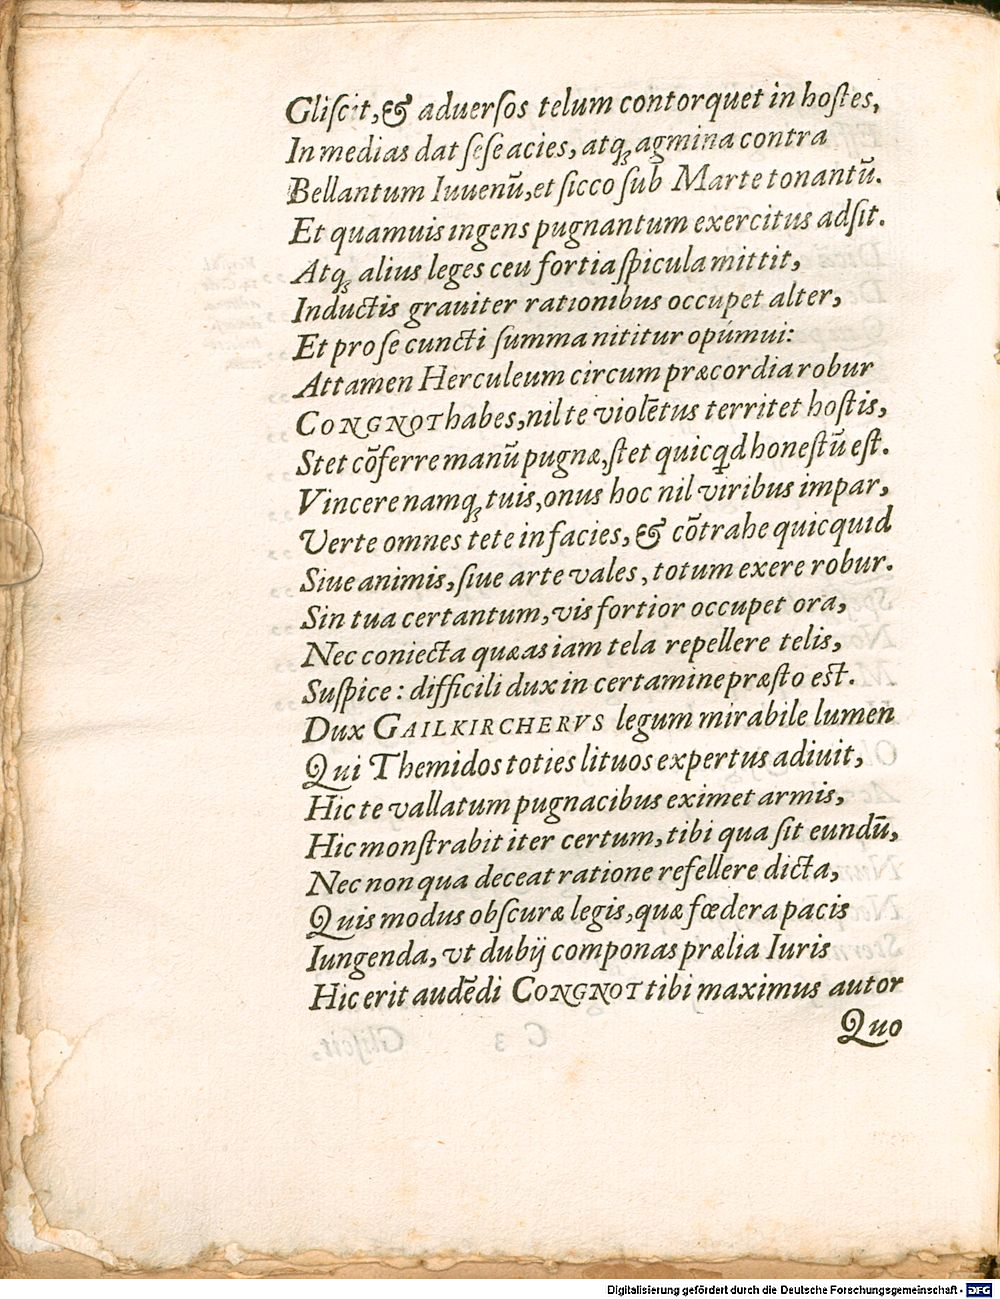 Gliſcit, & aduerſos telum contorquet in hoſtes,
In medias dat ſeſe acies, atq; agmina contra
Bellantum Iuuenū, et ſicco ſub Marte tonantū.
Et quamuis ingens pugnantum exercitus adſit.
Atq; alius leges ceu fortia ſpicula mittit,
Inductis grauiter rationibus occupet alter,
Et pro ſe cuncti ſumma nititur opúmui:
Attamen Herculeum circum præcordia robur
CONGNOT habes, nil te violētus territet hoſtis,
Stet cōferre manū pugnæ, ſtet quicqd honeſtū eſt.
Vincere namq; tuis, onus hoc nil viribus impar,
Verte omnes tete in facies, & cōtrahe quicquid
Siue animis, ſiue arte vales, totum exere robur.
Sin tua certantum, vis fortior occupet ora,
Nec coniecta quæas iam tela repellere telis,
Suſpice: difficili dux in certamine præſto eſt.
Dux GAILKIRCHERVS legum mirabile lumen
Qui Themidos toties lituos expertus adiuit,
Hic te vallatum pugnacibus eximet armis,
Hic monſtrabit iter certum, tibi qua ſit eundū,
Nec non qua deceat ratione refellere dicta,
Quis modus obſcuræ legis, quæ fœdera pacis
Iungenda, vt dubij componas prælia Iuris
Hic erit audēdi CONGNOT tibi maximus autor
Quo
Digitalisierung gefördert durch die Deutsche Forschungsgemeinschaft - DFG